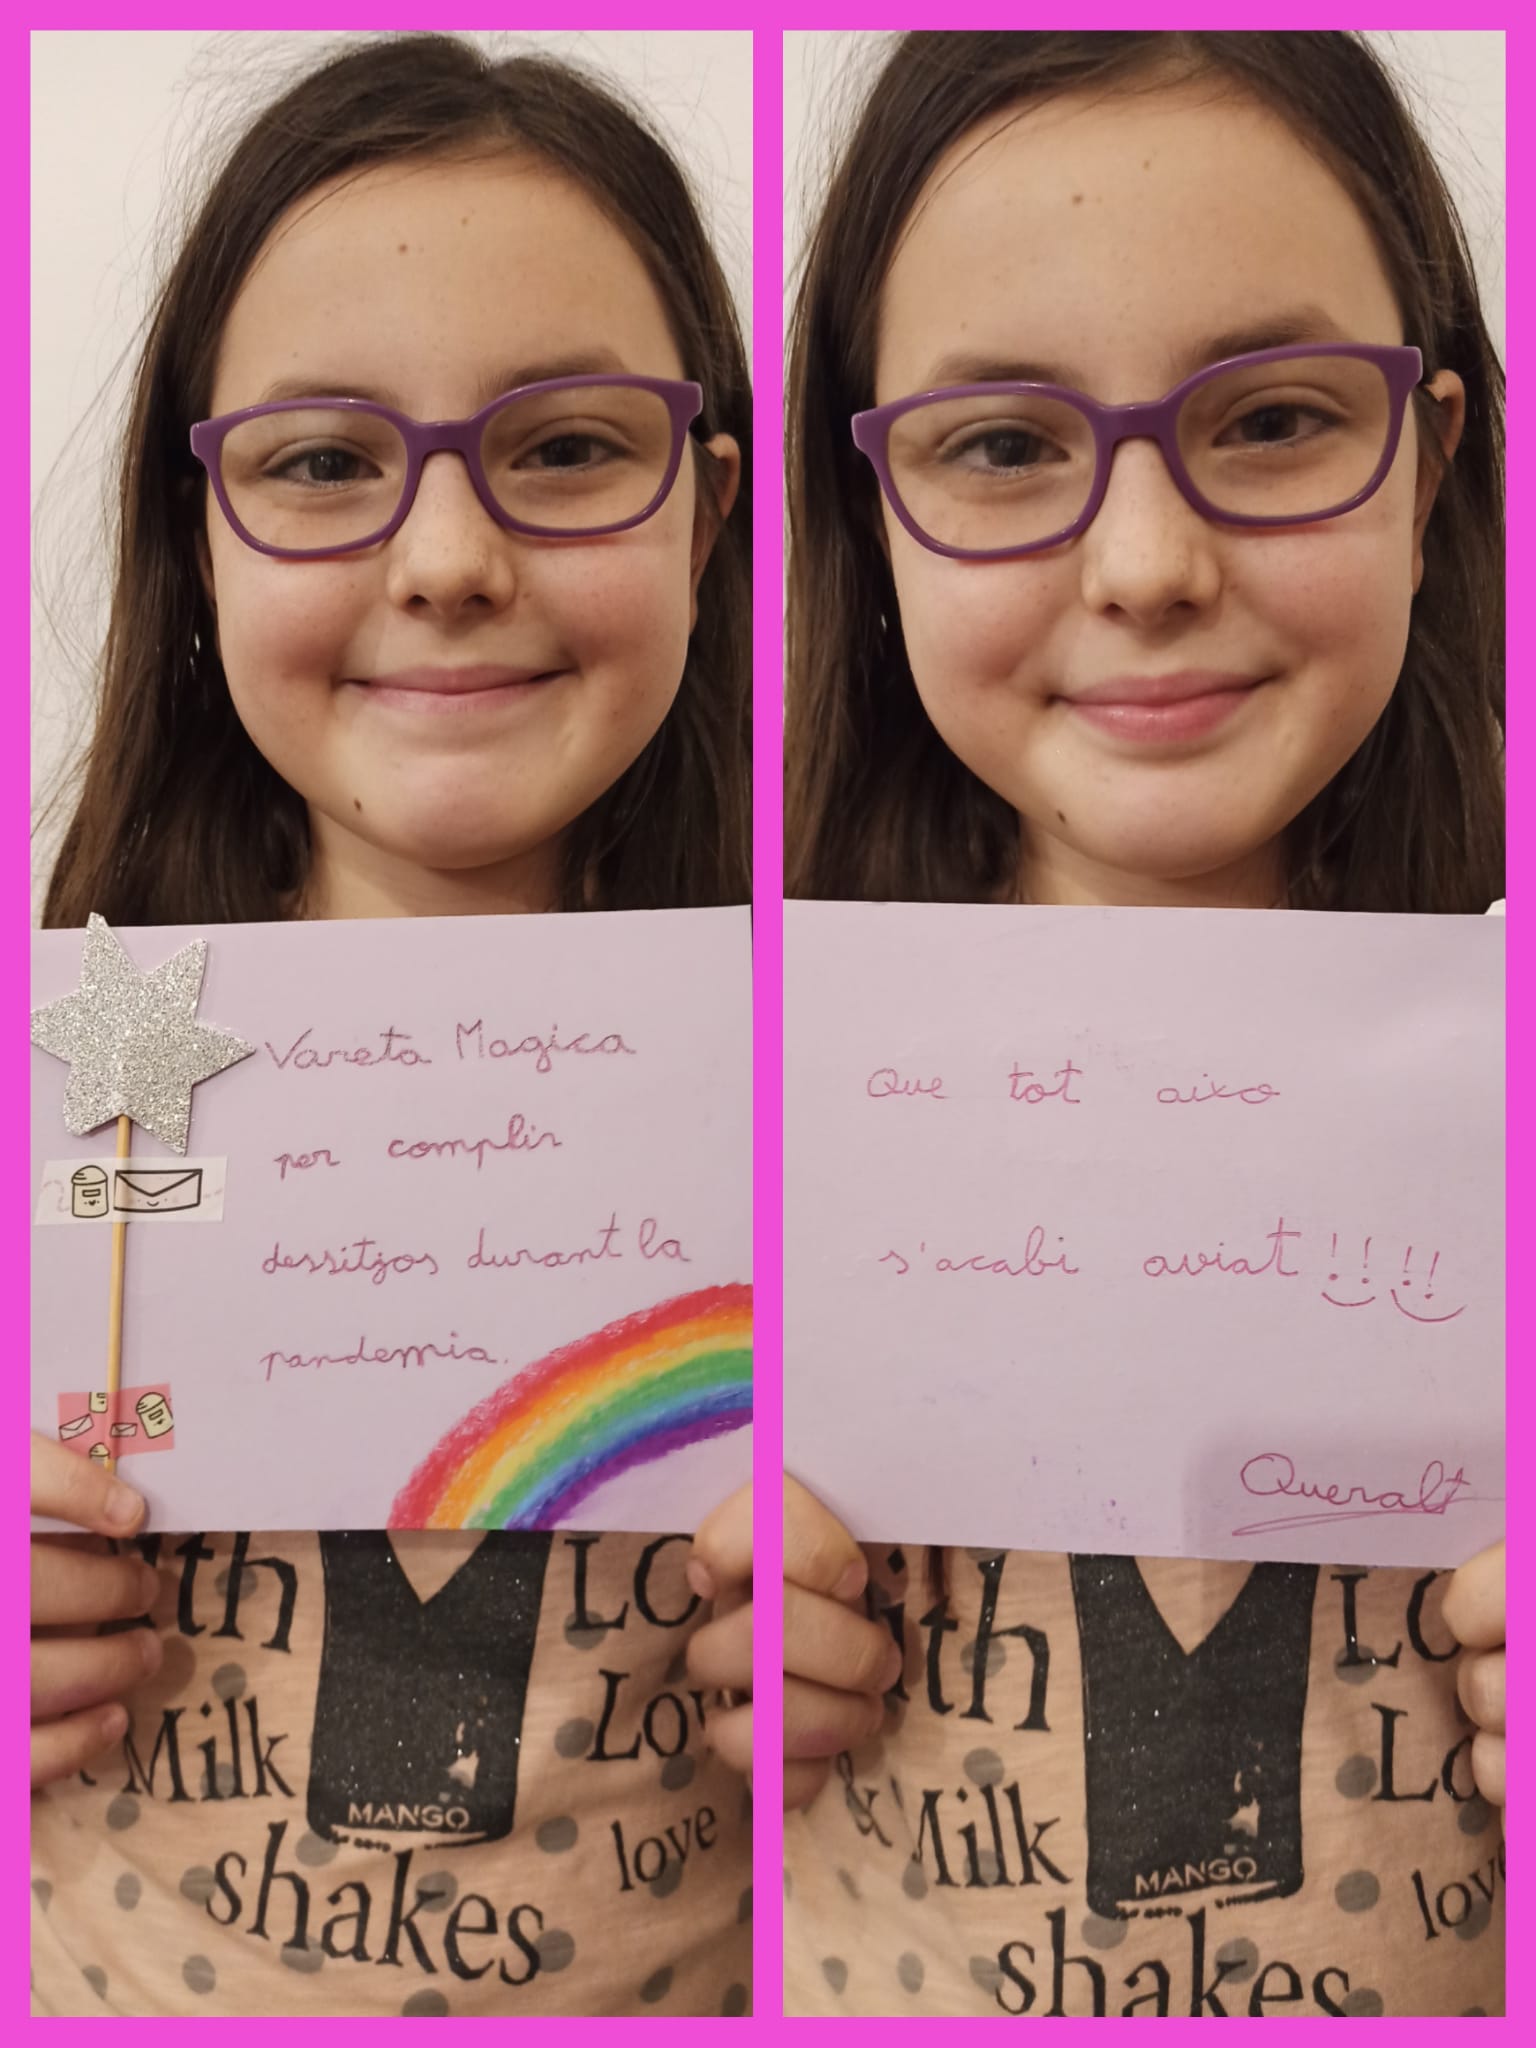 Vareta Magica
per complir
dessitjos durant la
pandemia.
ith
LO
Milk
Lov
MANGO
love
shakes
Que tot aixo
s'acabi aviat!!!!
Queralt
ith
LO
& Milk
Lo
MANGO
lov
shakes